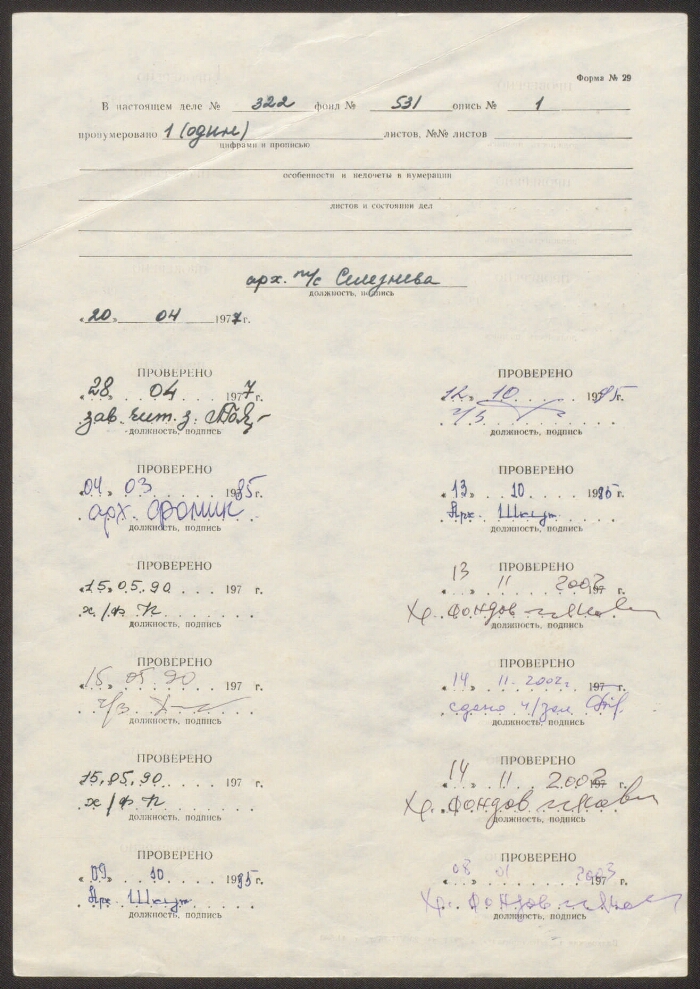 Форма № 29
В настоящем деле № 322 фонд № 531 опись № 1
пронумеровано 1 (один) листов, №№ листов
цифрами и прописью
особенности и недочеты в нумерации
листов и состоянии дел
арх. Селезнева
должность, подпись
«20» 04 1977 г.
ПРОВЕРЕНО
«28» 04 1977 г.
зав. чит. з.
должность, подпись
ПРОВЕРЕНО
«04» 03 1985 г.
арх.
должность, подпись
ПРОВЕРЕНО
«15.05.90 197 г.
х/ф
должность, подпись
ПРОВЕРЕНО
«15» 05 90 197 г.
ч/з
должность, подпись
ПРОВЕРЕНО
15.05.90 197 г.
х/ф
должность, подпись
ПРОВЕРЕНО
«09» 10 1985 г.
Арх.
должность, подпись
ПРОВЕРЕНО
«12» 10 1985 г.
ч/з
должность, подпись
ПРОВЕРЕНО
«13» 10 1985 г.
Арх.
должность, подпись
ПРОВЕРЕНО
13 11 2002
Хр. фондов
должность, подпись
ПРОВЕРЕНО
«14 11.2002г. 197 г.
сдано ч/зал
должность, подпись
ПРОВЕРЕНО
14 11 2002
Хр. фондов
должность, подпись
ПРОВЕРЕНО
08 01 2003
Хр. фондов
должность, подпись